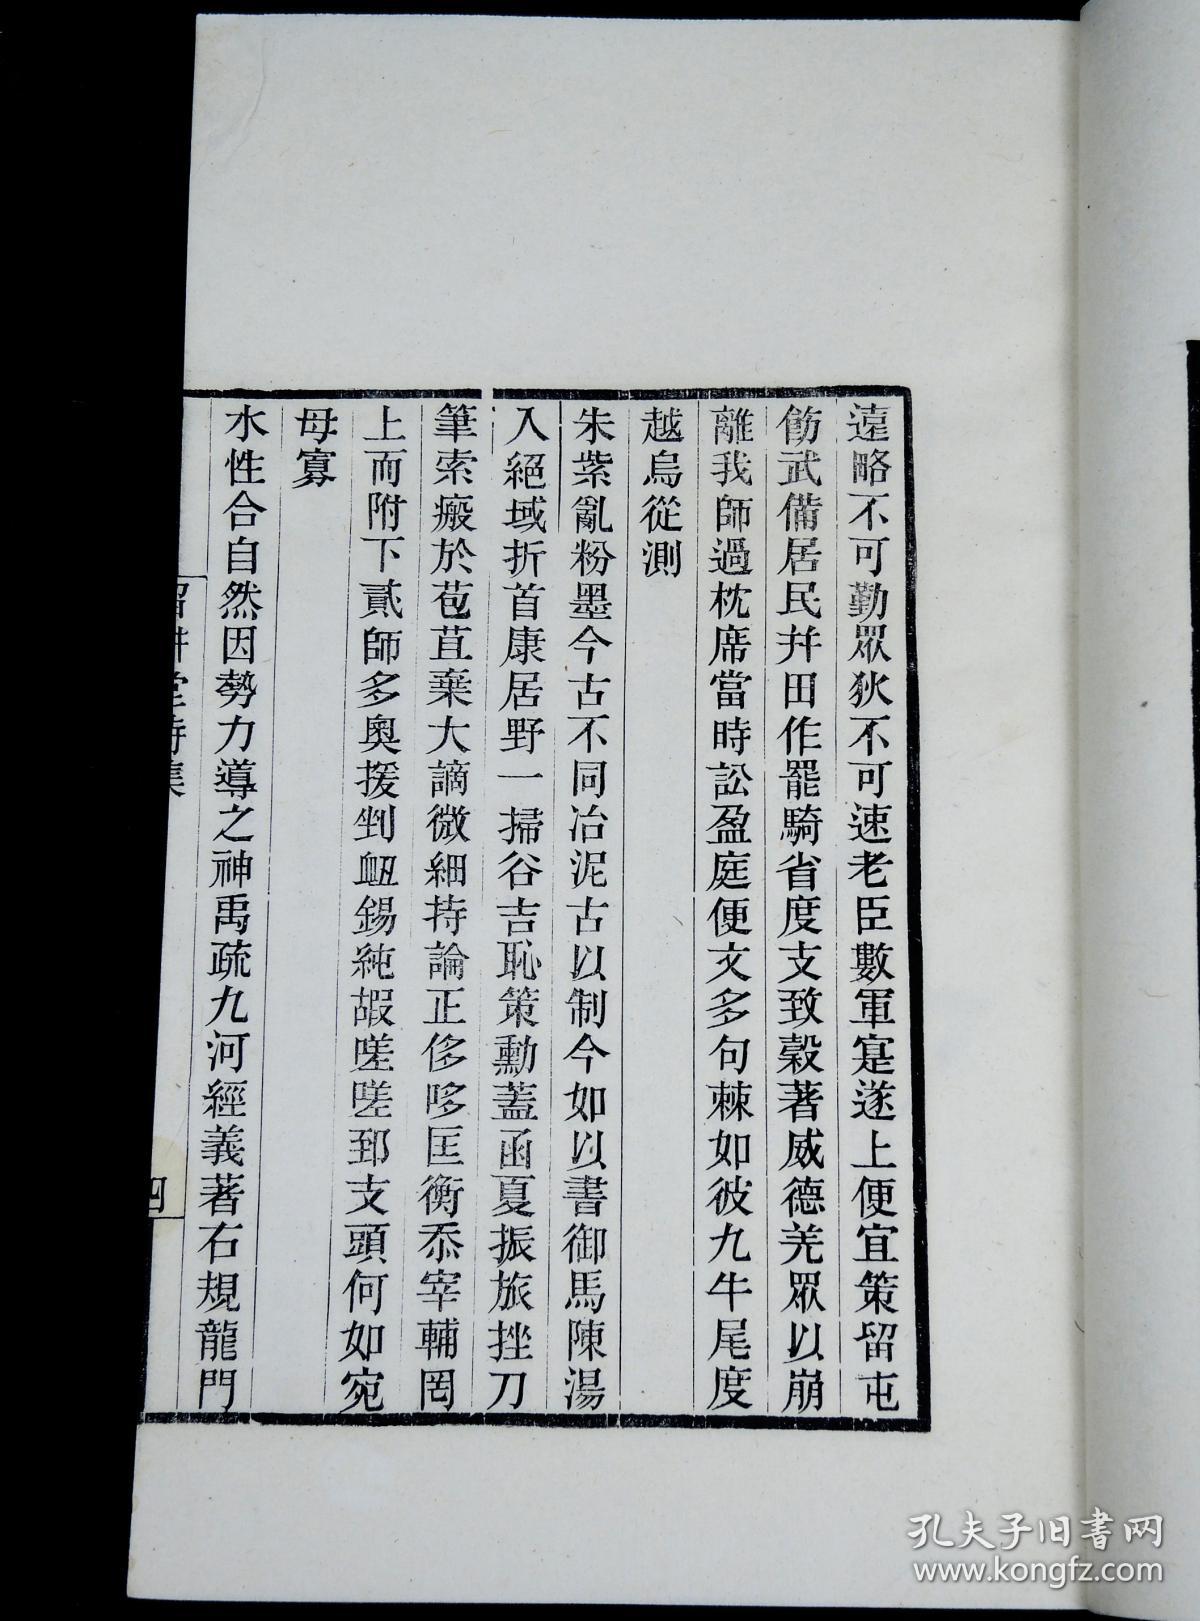 遠略不可勤眾狄不可速老臣數軍寔遂上便宜策留屯
飭武備居民幷田作罷騎省度支致穀著威德羌眾以崩
離我師過枕席當時訟盈庭便文多句棘如彼九牛尾度
越烏從測
朱紫亂粉墨今古不同冶泥古以制今如以書御馬陳湯
入絕域折首康居野一掃谷吉恥策勳蓋函夏振旅挫刀
筆索瘢於苞苴棄大謫微細持論正侈哆匡衡忝宰輔罔
上而附下貳師多奧援剉衄錫純嘏嗟嗟郅支頭何如宛
母寡
水性合自然因勢力導之神禹疏九河經義著右規龍門
堂詩集
四
孔夫子旧书网
www.kongfz.com